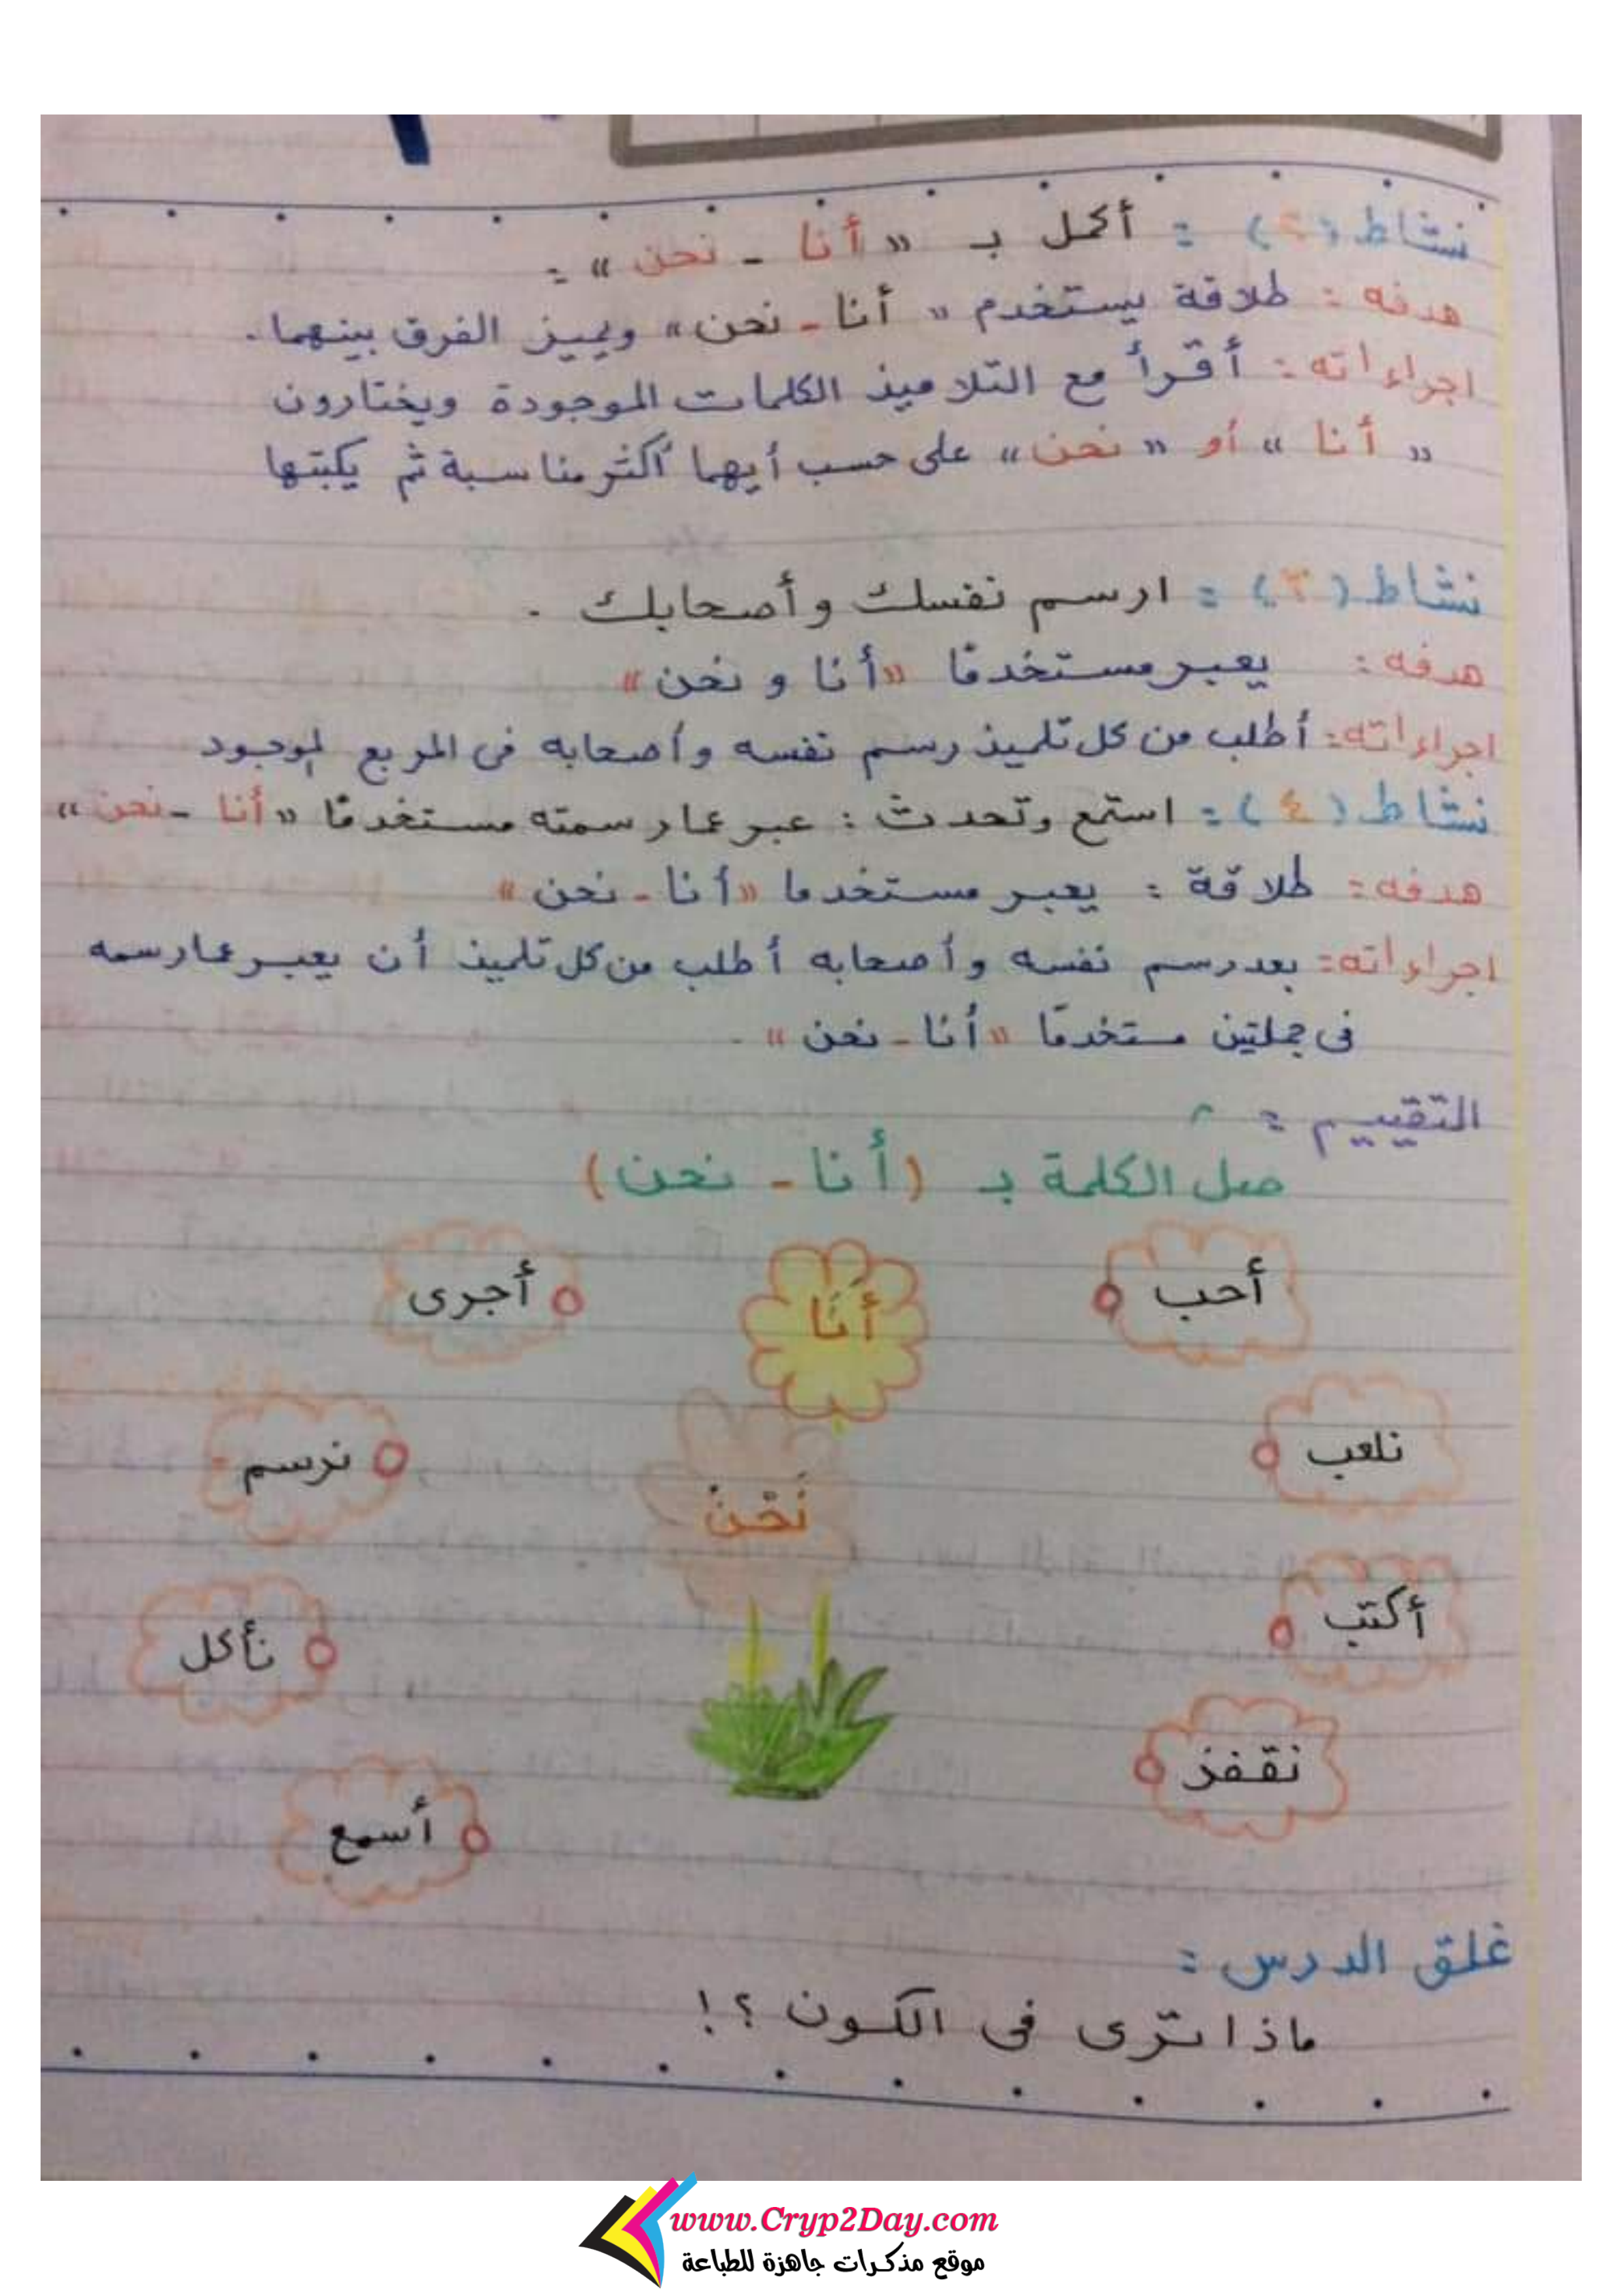 نشاط (٢) : أكمل بـ « أنا - نحن » :
هدفه : طلاقة يستخدم « أنا - نحن » ويميز الفرق بينهما .
اجراءاته : أقرأ مع التلاميذ الكلمات الموجودة ويختارون
« أنا » أو « نحن » على حسب أيهما أكثر مناسبة ثم يكتبها
نشاط (٣) : ارسم نفسك وأصحابك .
هدفه : يعبر مستخدمًا « أنا و نحن »
اجراءاته : أطلب من كل تلميذ رسم نفسه وأصحابه فى المربع الموجود
نشاط (٤) : استمع وتحدث : عبر عما رسمته مستخدمًا « أنا - نحن »
هدفه : طلاقة : يعبر مستخدما « أنا - نحن »
اجراءاته : بعد رسم نفسه وأصحابه أطلب من كل تلميذ أن يعبر عما رسمه
فى جملتين مستخدمًا « أنا - نحن » .
التقييم :
صل الكلمة بـ (أنا - نحن)
أحب
أَنَا
أجرى
نلعب
نَحْنُ
نرسم
أكتب
نأكل
نقفز
أسمع
غلق الدرس :
ماذا ترى فى الكون ؟!
www.Cryp2Day.com
موقع مذكرات جاهزة للطباعة